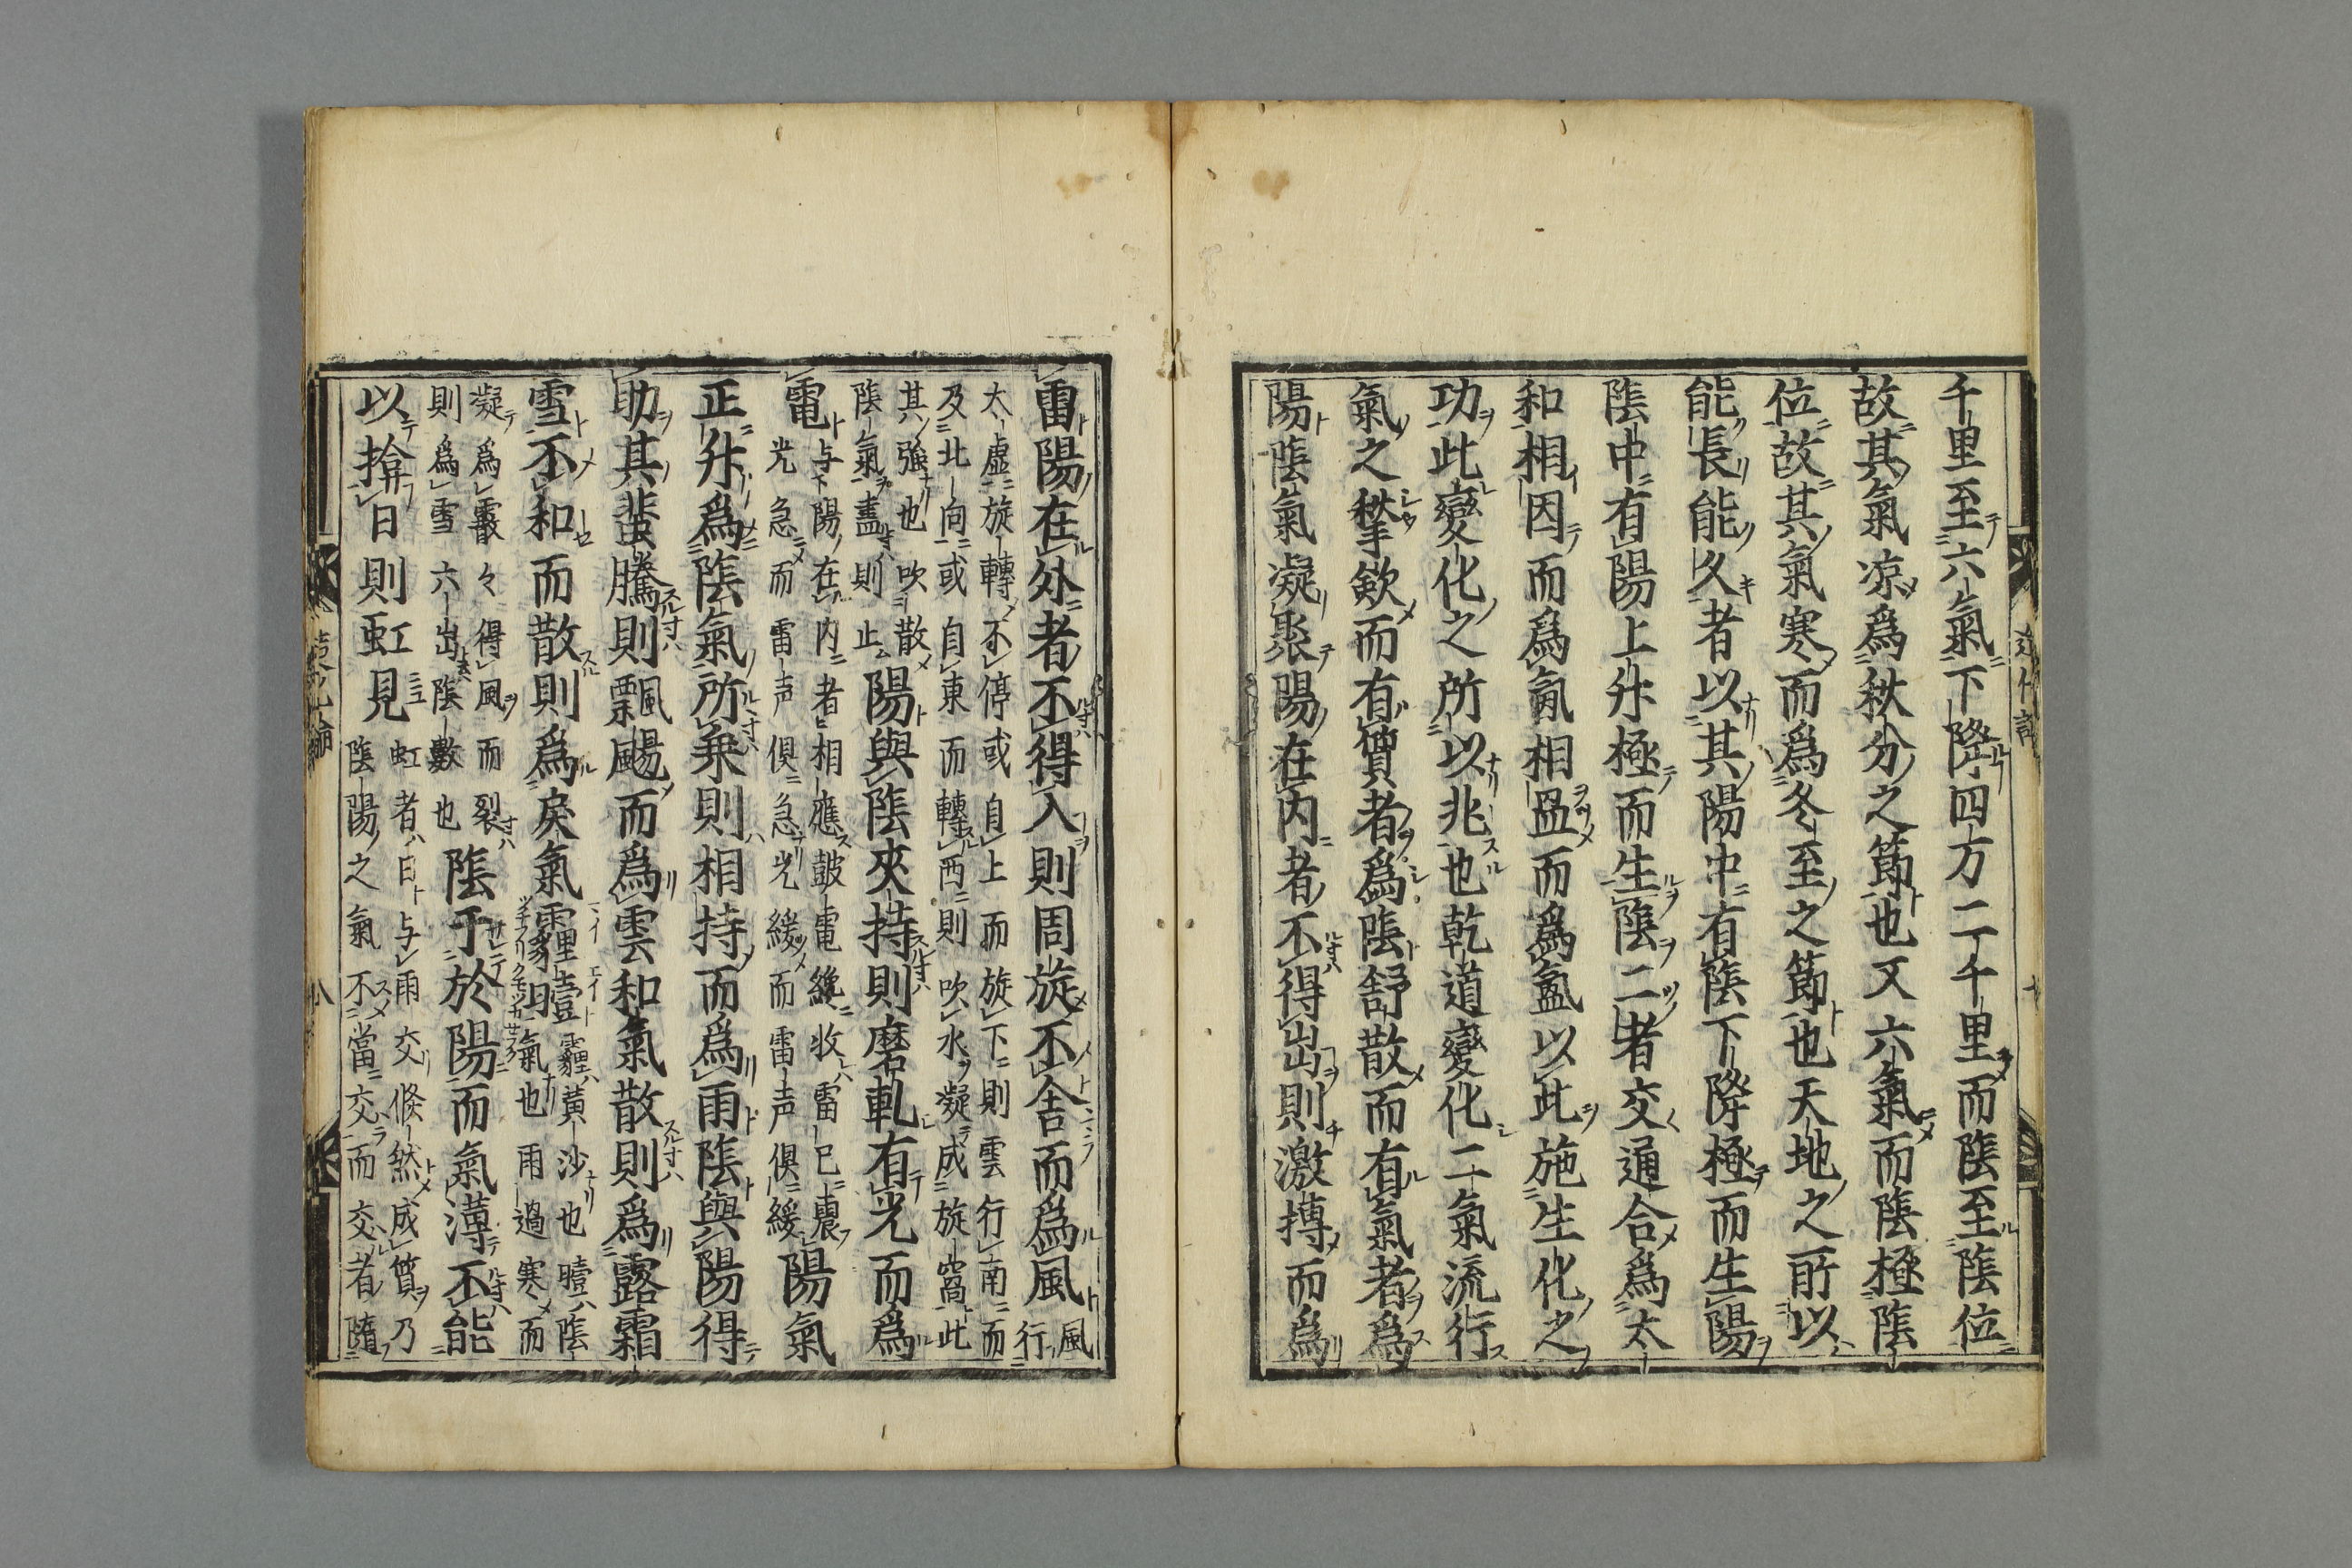 千里至六氣下降四方二千里而陰至陰位
故其氣凉爲秋分之節也又六氣而陰極陰
位故其氣寒而爲冬至之節也天地之所以
能長能久者以其陽中有陰下降極而生陽
陰中有陽上升極而生陰二者交通合爲太
和相因而爲氤相盈而爲氳以此施生化之
功此變化之所以兆也乾道變化二氣流行
氣之揫歛而有質者爲陰舒散而有氣者爲
陽陰氣凝聚陽在内者不得出則激摶而爲
雷陽在外者不得入則周旋不舍而爲風風行
太虛旋轉不停或自上而旋下則雲行南而
及北向或自東而轉西則吹水凝成旋窩此
其強也吹散陰氣盡則止陽與陰夾持則磨軋有光而爲
電与陽在内者相應皷電纔收雷已震
光急而雷声俱急光緩而雷声俱緩陽氣
正升爲陰氣所乘則相持而爲雨陰與陽得
助其蜚騰則飄颺而爲雲和氣散則爲露霜
雪不和而散則爲戾氣霾曀霾黃沙也曀陰
氣也雨過寒而
凝爲霰々得風而裂
則爲雪六出陰數也陰于於陽而氣薄不能
以揜日則虹見虹者日与雨交倐然成質乃
陰陽之氣不當交而交者隨
八